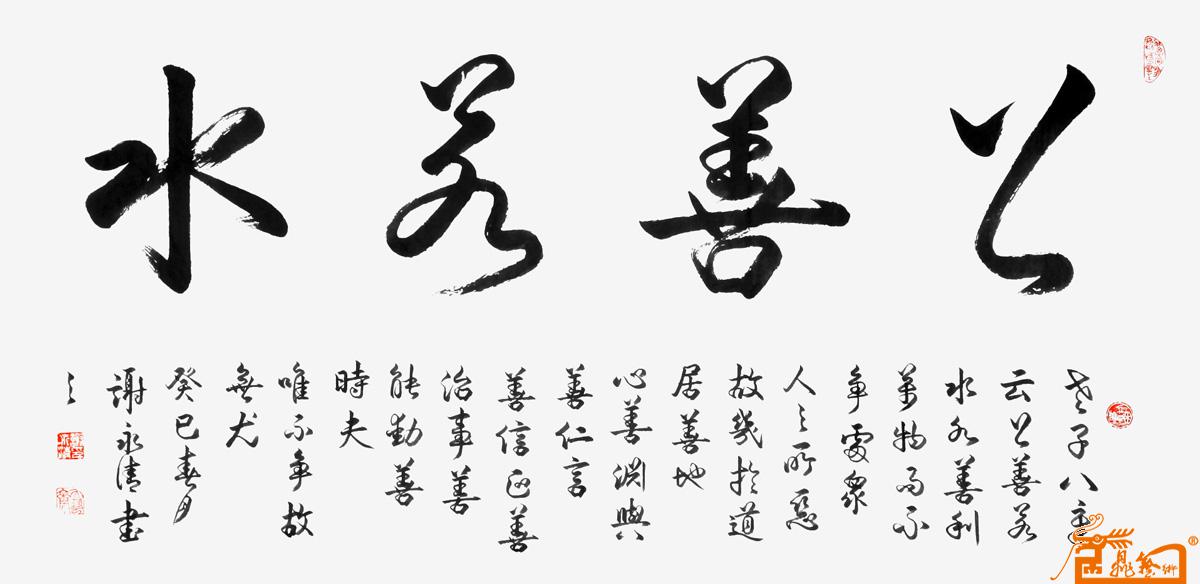 上善若水
老子八章
云上善若
水水善利
萬物而不
爭處衆
人之所惡
故幾於道
居善地
心善淵與
善仁言
善信正善
治事善
能動善
時夫
唯不爭故
無尤
癸巳春月
謝永清書
之